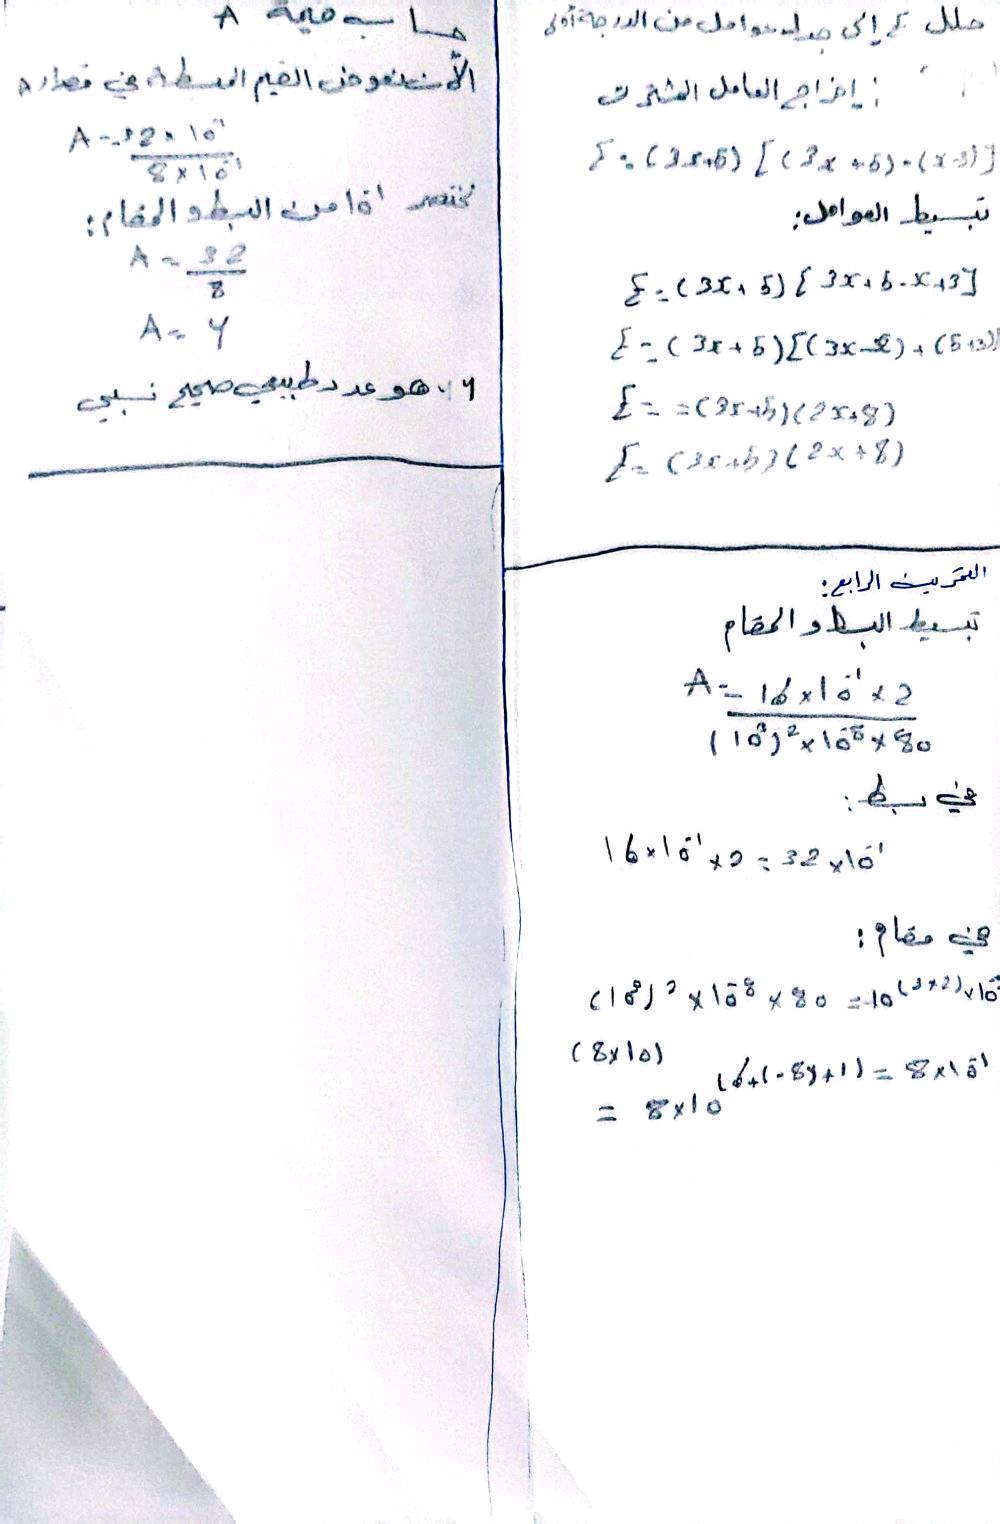 حلل E إلى جداء عوامل من الدرجة أولى
إخراج العامل المشترك:
E = (3x+5) [(3x+5)-(x-3)]
تبسيط العوامل:
E = (3x+5) [3x+5-x+3]
E = (3x+5)[(3x-x)+(5+3)]
E = = (3x+5)(2x+8)
E = (3x+5)(2x+8)
التمرين الرابع:
تبسيط البسط و المقام
A = 16×10⁻¹×2
(10³)²×10⁻⁸×80
في بسط:
16×10⁻¹×2 = 32×10⁻¹
في مقام:
(10³)²×10⁻⁸×80 = 10^(3×2)×10⁻⁸
(8×10)
= 8×10^(6+(-8)+1) = 8×10⁻¹
حساب قيمة A
الآن نعوض القيم المبسطة في
A = 32×10⁻¹
8×10⁻¹
نختصر 10⁻¹ من البسط و المقام:
A = 32
8
A = 4
4: هو عدد طبيعي صحيح نسبي